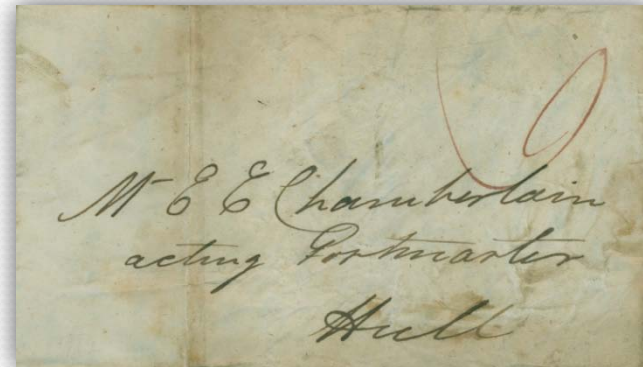 Mr E E Chamberlain
acting Postmaster
Hull